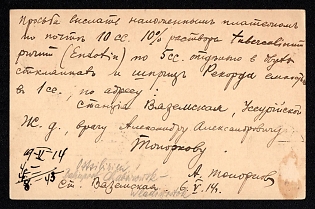 Просьба выслать наложенным платежом
по почте 10 сс. 10% раствора tuberculini
purum (Endotin) по 5сс. отдельно в
стклянках и шприц Рекорда емкостью
в 1 сс., по адресу:
Станция Вяземская, Уссурийской
Ж. д., врачу Александру Александровичу
Топоркову.
А. Топорков
Ст. Вяземская 6. V. 14.